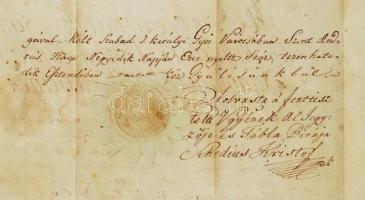 gával. Költ Szabad 's királyi Győr Városában Szent And-
rás Hava Negyedik Napján Ezer nyoltz Száz, tizenhato-
dik Esztendőben Köz Gyűlésünkbül.
Olvasta a fentisz-
telt Vgyének Al Jegy-
zője és Tábla Birája
Medius Kristóf